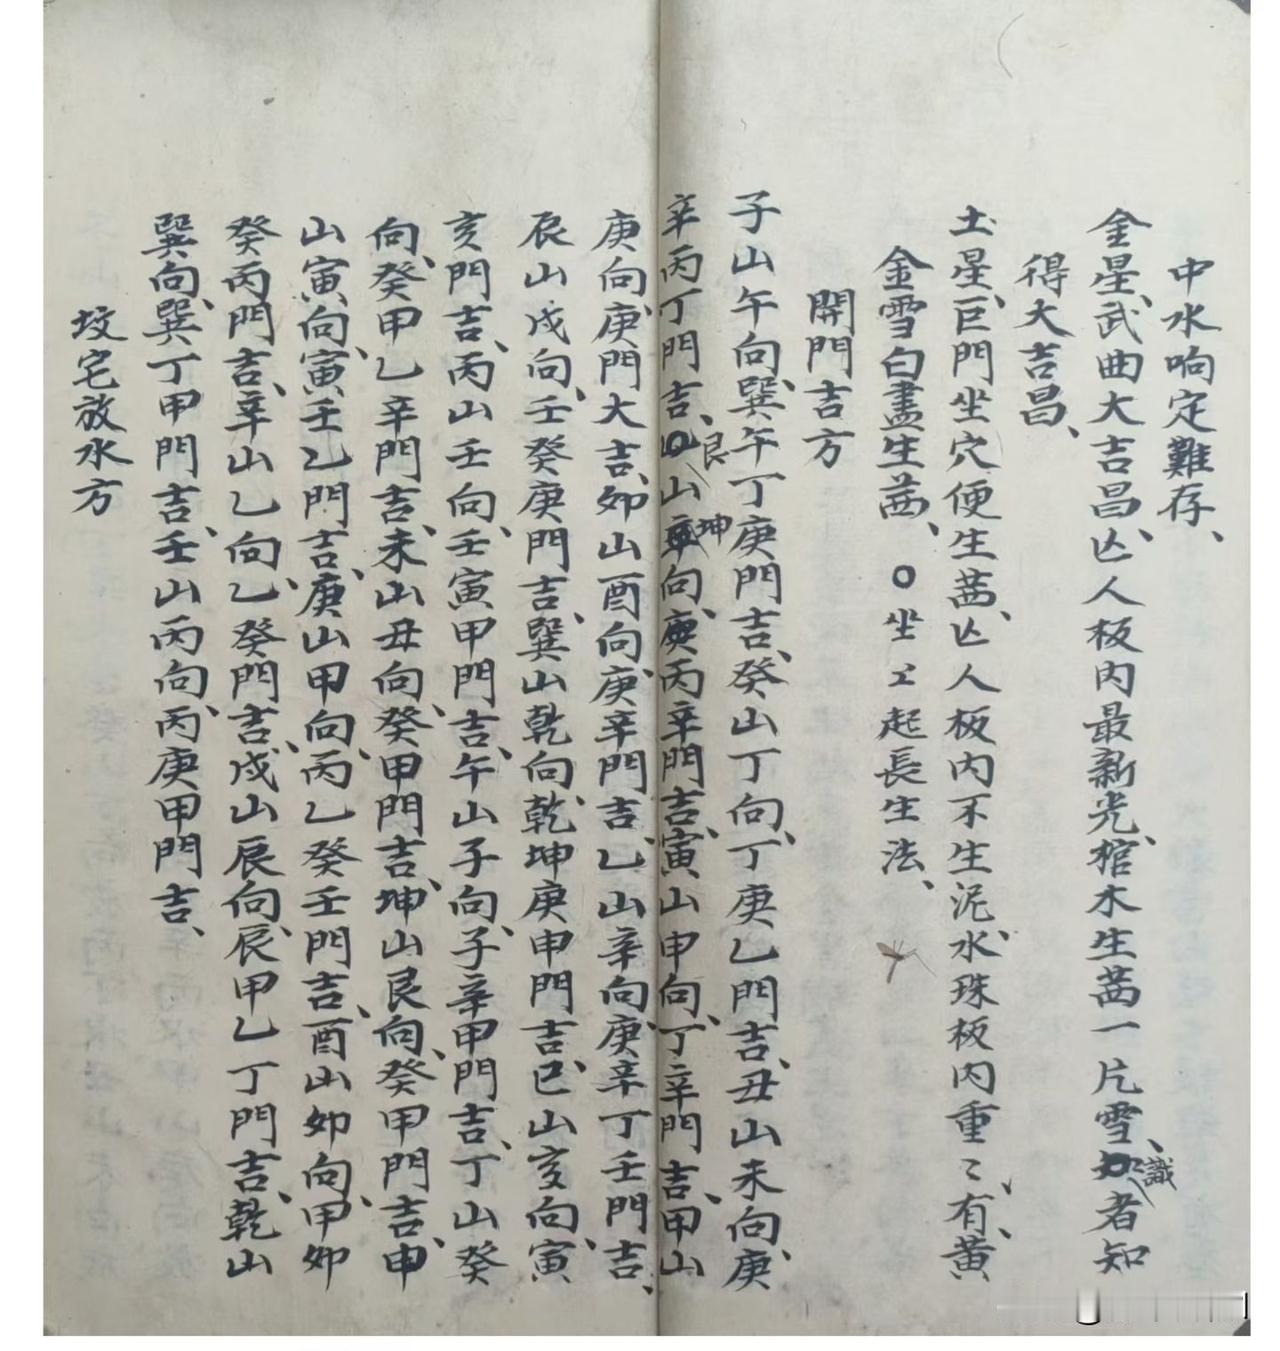 中水响定難存、
金星、武曲大吉昌、亾人板内最新光、棺木生茜一片雪、識者知
得大吉昌、
土星、巨門坐穴便生茜、亾人板内不生泥、水珠板内重〻、有、黄
金雪白盡生茜、○坐工起長生法、
開門吉方
子山午向、巽午丁庚門吉、癸山丁向、丁庚乙門吉、丑山未向、庚
辛丙丁門吉、艮山坤向、庚丙辛門吉、寅山申向、丁辛門吉、甲山
庚向、庚門大吉、卯山酉向、庚辛門吉、乙山辛向、庚辛丁壬門吉、
辰山戌向、壬癸庚門吉、巽山乾向、乾坤庚申門吉、巳山亥向、寅
亥門吉、丙山壬向、壬寅甲門吉、午山子向、子辛甲門吉、丁山癸
向、癸甲乙辛門吉、未山丑向、癸甲門吉、坤山艮向、癸甲門吉、申
山寅向、寅壬乙門吉、庚山甲向、丙乙癸壬門吉、酉山卯向、甲卯
癸丙門吉、辛山乙向、乙癸門吉、戌山辰向、辰甲乙丁門吉、乾山
巽向、巽丁甲門吉、壬山丙向、丙庚甲門吉、
坟宅放水方